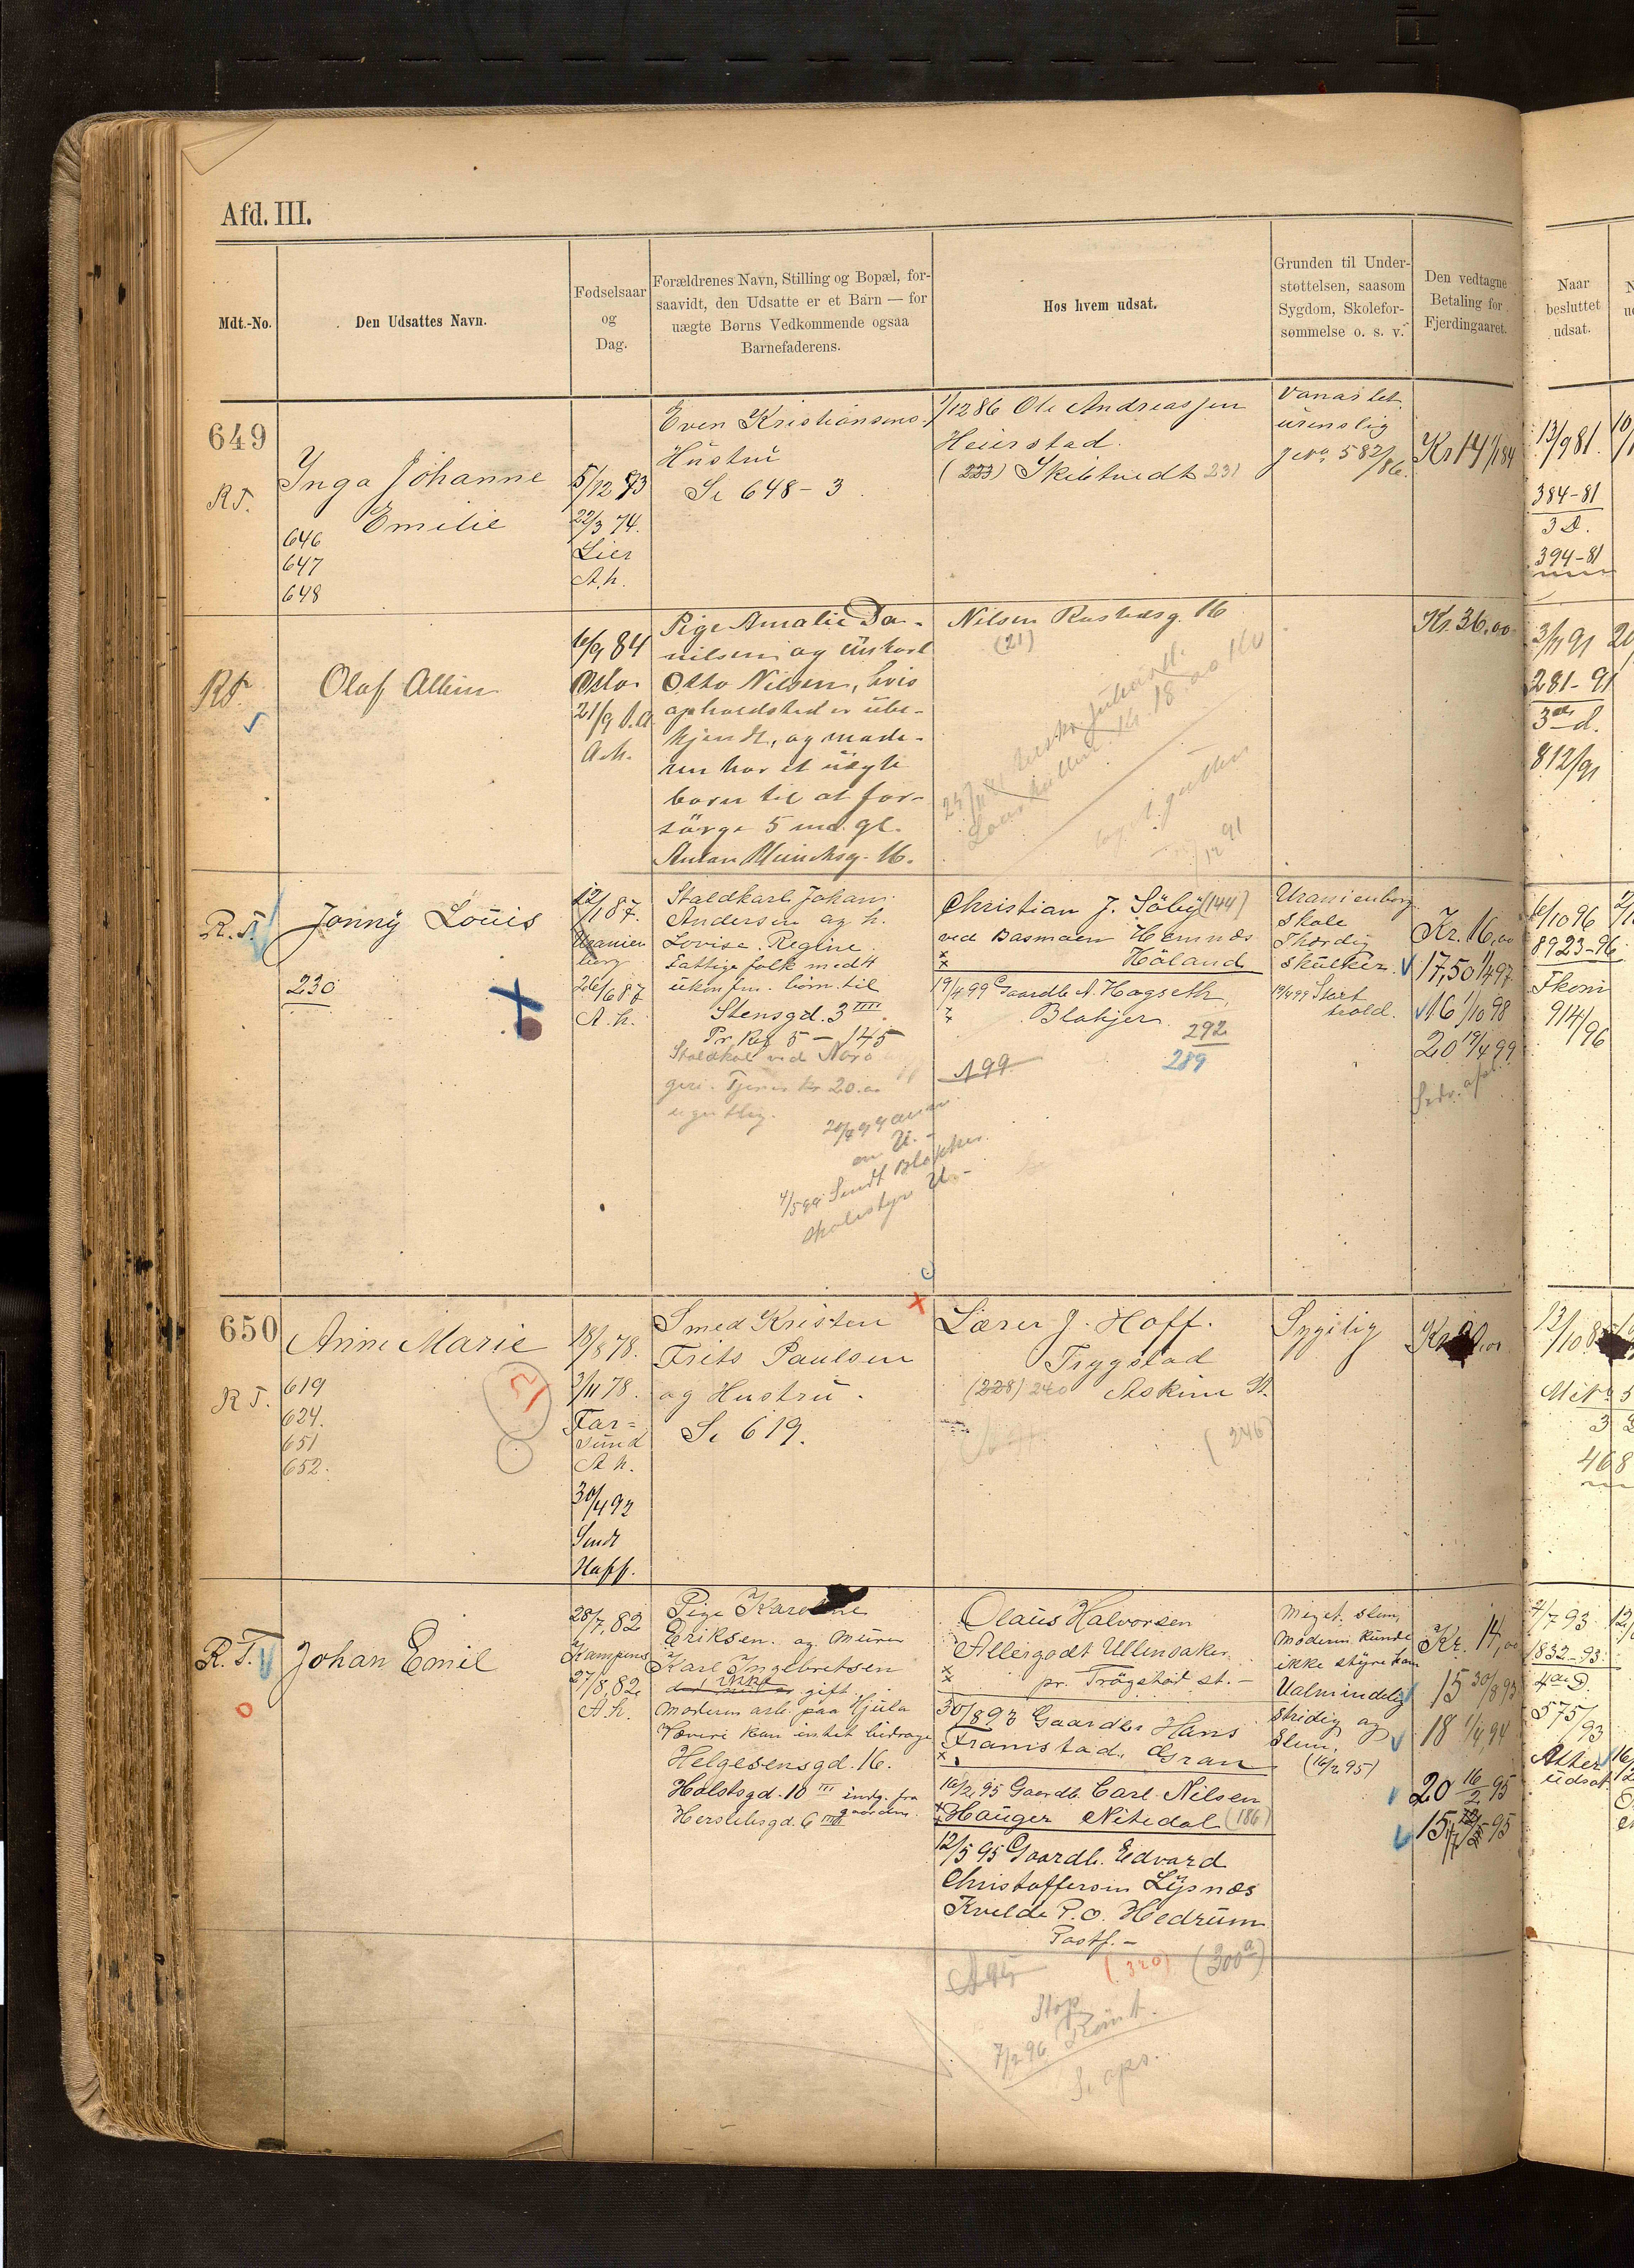 Afd. III.
Mdt.-No.
Den Udsattes Navn.
Fødselsaar
og
Dag.
Forældrenes Navn, Stilling og Bopæl, for-
saavidt, den Udsatte er et Barn — for
uægte Børns Vedkommende ogsaa
Barnefaderens.
Hos hvem udsat.
Grunden til Under-
støttelsen, saasom
Sygdom, Skolefor-
sømmelse o. s. v.
Den vedtagne
Betaling for
Fjerdingaaret.
Naar
besluttet
udsat.
649
R.T.
Inga Johanne
Emilie
646
647
648
5/12 73
22/3 74.
Lier
A.h.
Even Kristiansens
Hustru
Se 648-3
1/12 86 Ole Andreassen
Heierstad
(223) Skibtvedt 231
Vanartet
urenslig
582/86.
Kr 14 1/184
13/9 81.
384-81
3 D.
394-81
R.T.
Olaf Albin
6/9 84
Oslo
21/9 s.a.
A.h.
Pige Amalie Da-
nilsen og Ungkarl
Otto Nilsen, hvis
opholdsted er ube-
kjendt, og mode-
ren har et uægte
barn til at for-
sørge 5 md. gl.
Anton Munchsg. 16.
Nilsen Rustadsg. 16
(21)
Kr. 36,00
3/11 91
281-91
3die d.
812/91
R.T.
Jonny Louis
230
12/1 87.
Uranien
borg
26/6 87
A.h.
Staldkarl Johan
Andersen og h.
Lovise Regine
Fattige folk med 4
ukonfirm. börn til
Stensgd. 3 IIII
Pr. Reg 5 - 145
Staldkarl ved Nora
geri. Tjener kr 20.00
ugentlig.
4/5 99 Sendt Blakjer
skolestyre U.-
Christian J. Söby (144)
ved Basmoen Hemnæs
Höland
19/4 99 Gaardb. A. Hagseth
Blakjer
292
289
A 99
Uranienborg
skole
Thordig
skulker.
19/4 99 Skort
hold.
Kr. 16,00
17,50 1/4 97
16 1/10 98
20 19/4 99
6/10 96
8923-96
Fkom
914/96
650
R.T.
Anne Marie
619
624.
651
652.
18/8 78.
3/11 78.
Far-
sund
A.h.
30/4 92
Sendt
Hoff.
Smed Kristen
Frits Paulsen
og Hustru.
Se 619.
Lærer J. Hoff.
Trygstad
(228) 240 Askim St.
(246)
Sygelig
13/10 8
468
R.T.
Johan Emil
28/7, 82
Kampens
27/8, 82
A.h.
Pige Karoline
Eriksen og Murer
Karl Ingebretsen
ikke gift.
Moderen arb. paa Hjula
Væveri kan intet bidrage
Helgesensgd. 16.
Holstsgd. 10 III indg. fra
gaarden.
Herslebsgd. 6 III
Olaus Halvorsen
Allergodt Ullensaker
pr. Trögstad st.-
30/8 93 Gaardbr Hans
Framstad, Gran
16/2 95 Gaardb. Carl Nilsen
Hauger Nitedal (186)
12/5 95 Gaardb. Edvard
Christoffersen Lysnæs
Kvelde P.O. Hedrum
Postf.-
A 95
(320) (300 a)
Stop
7/2 96
Meget slem,
Moderen kunde
ikke styre ham
Ualmindelig
stridig og
slem.
(16/2 95)
Kr. 14,00
15 30/8 93
18 1/4, 94
20 16/2 95
15
2/7 93
1832-93
4de D.
575/93
Atter
udsat